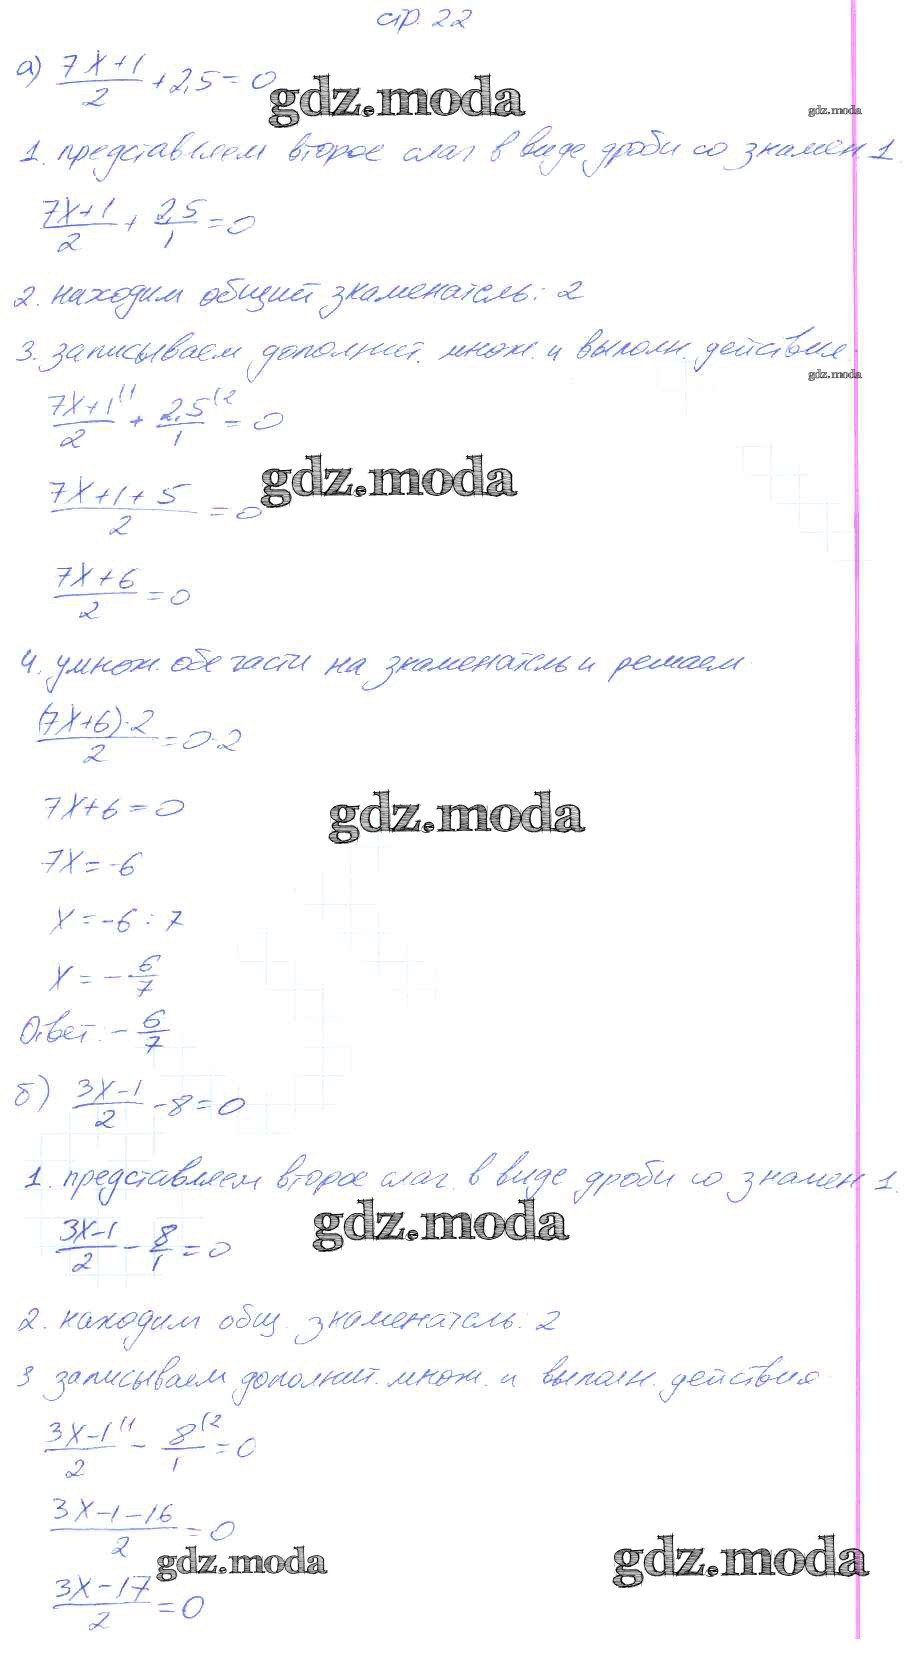 стр. 22
а) (7x+1)/2 + 2,5 = 0
gdz.moda
gdz.moda
1. представляем второе слаг. в виде дроби со знамен 1.
(7x+1)/2 + 2,5/1 = 0
2. находим общий знаменатель: 2
3. записываем дополнит. множ. и выполн. действия.
gdz.moda
(7x+1)/2 (1 + 2,5/1 (2 = 0
gdz.moda
(7x+1+5)/2 = 0
(7x+6)/2 = 0
4. умнож. обе части на знаменатель и решаем.
((7x+6)·2)/2 = 0·2
7x+6=0
gdz.moda
7x=-6
x=-6:7
x=-6/7
Ответ: -6/7
б) (3x-1)/2 - 8 = 0
1. представляем второе слаг. в виде дроби со знамен 1.
gdz.moda
(3x-1)/2 - 8/1 = 0
2. находим общ. знаменатель: 2
3 записываем дополнит. множ. и выполн. действия.
(3x-1)/2 (1 - 8/1 (2 = 0
(3x-1-16)/2 = 0
gdz.moda
gdz.moda
(3x-17)/2 = 0